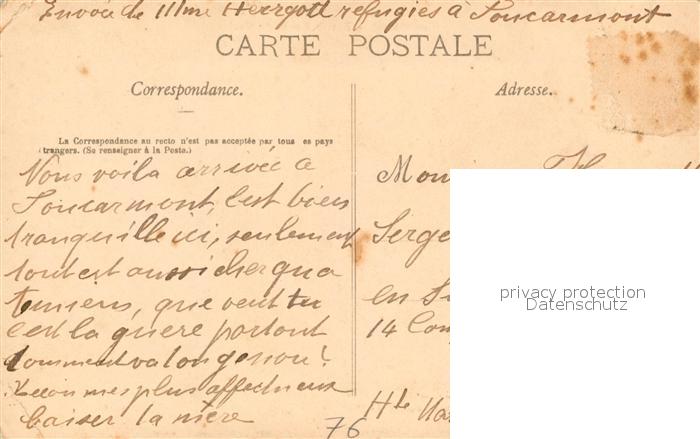 Envoée de Mme Herrgott refugies à Foucarmont
CARTE POSTALE
Correspondance.
Adresse.
La Correspondance au recto n'est pas acceptée par tous es pays
trangers. (Se renseigner à la Poste.)
Nous voila arrivée a
Foucarmont, c'est bien
tranquille ici, seulement
tout est aussi cher qu a
que veut tu
c'est la guere partout
comment va ton genou?
mes plus affectueux
baiser ta mère
Serge
en
14 Com
Hte
76
privacy protection
Datenschutz